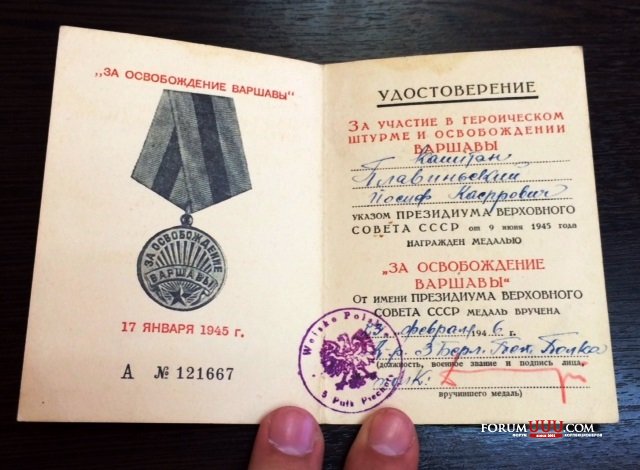 „ЗА ОСВОБОЖДЕНИЕ ВАРШАВЫ“
ЗА ОСВОБОЖДЕНИЕ
ВАРШАВЫ
17 ЯНВАРЯ 1945 г.
А № 121667
УДОСТОВЕРЕНИЕ
ЗА УЧАСТИЕ В ГЕРОИЧЕСКОМ
ШТУРМЕ И ОСВОБОЖДЕНИИ
ВАРШАВЫ
Капитан
Главиньский
Иосиф
УКАЗОМ ПРЕЗИДИУМА ВЕРХОВНОГО
СОВЕТА СССР от 9 июня 1945 года
НАГРАЖДЕН МЕДАЛЬЮ
„ЗА ОСВОБОЖДЕНИЕ
ВАРШАВЫ“
От имени ПРЕЗИДИУМА ВЕРХОВНОГО
СОВЕТА СССР МЕДАЛЬ ВРУЧЕНА
февраля 1946 г.
Полка
(должность, военное звание и подпись лица,
вручившего медаль)
Wojsko Polskie
5 Pułk
FORUMUUU.COM
ФОРУМ КОЛЛЕКЦИОНЕРОВ